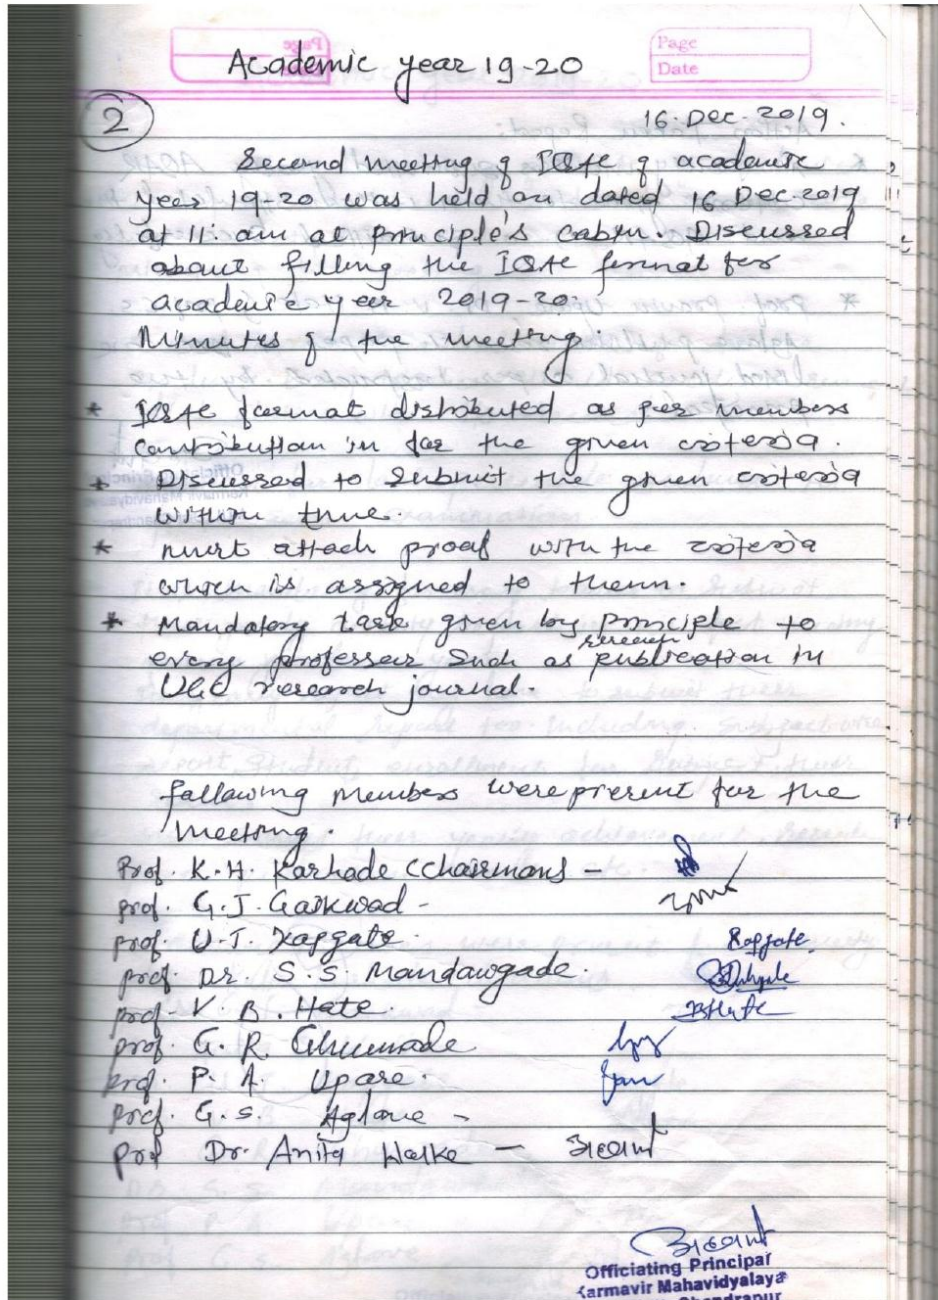 Page
Date
Academic year 19-20
2
16. Dec. 2019.
Second meeting of IQAC of academic
year 19-20 was held on dated 16 Dec. 2019
at 11: am at principle's cabin. Discussed
about filling the IQAC format for
academic year 2019-20.
Minutes of the meeting.
* IQAC format distributed as per members
contribution in for the given criteria.
* Discussed to submit the given criteria
within time.
* must attach proof with the criteria
which is assigned to them.
* Mandatory task given by principle to
every professor such as research publication in
UGC research journal.
following Members were present for the
meeting.
Prof. K.H. Karhade (chairmans -
prof. G.J. Gaikwad -
prof. U.T. Kapgate. Kapgate
prof. Dr. S.S. Mandawgade.
prof. V. B. Hate.
prof. G. R. Ghumade
prof. P. A. Upare.
prof. G. S. Aglawe -
prof Dr. Anita Walke -
Officiating Principal
Karmavir Mahavidyalaya
Chandrapur